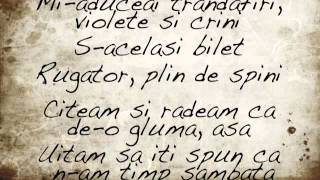 Mi-aduceai trandafiri,
violete si crini
S-acelasi bilet
Rugator, plin de spini
Citeam si radeam ca
de-o gluma, asa
Uitam sa iti spun ca
n-am timp sambata